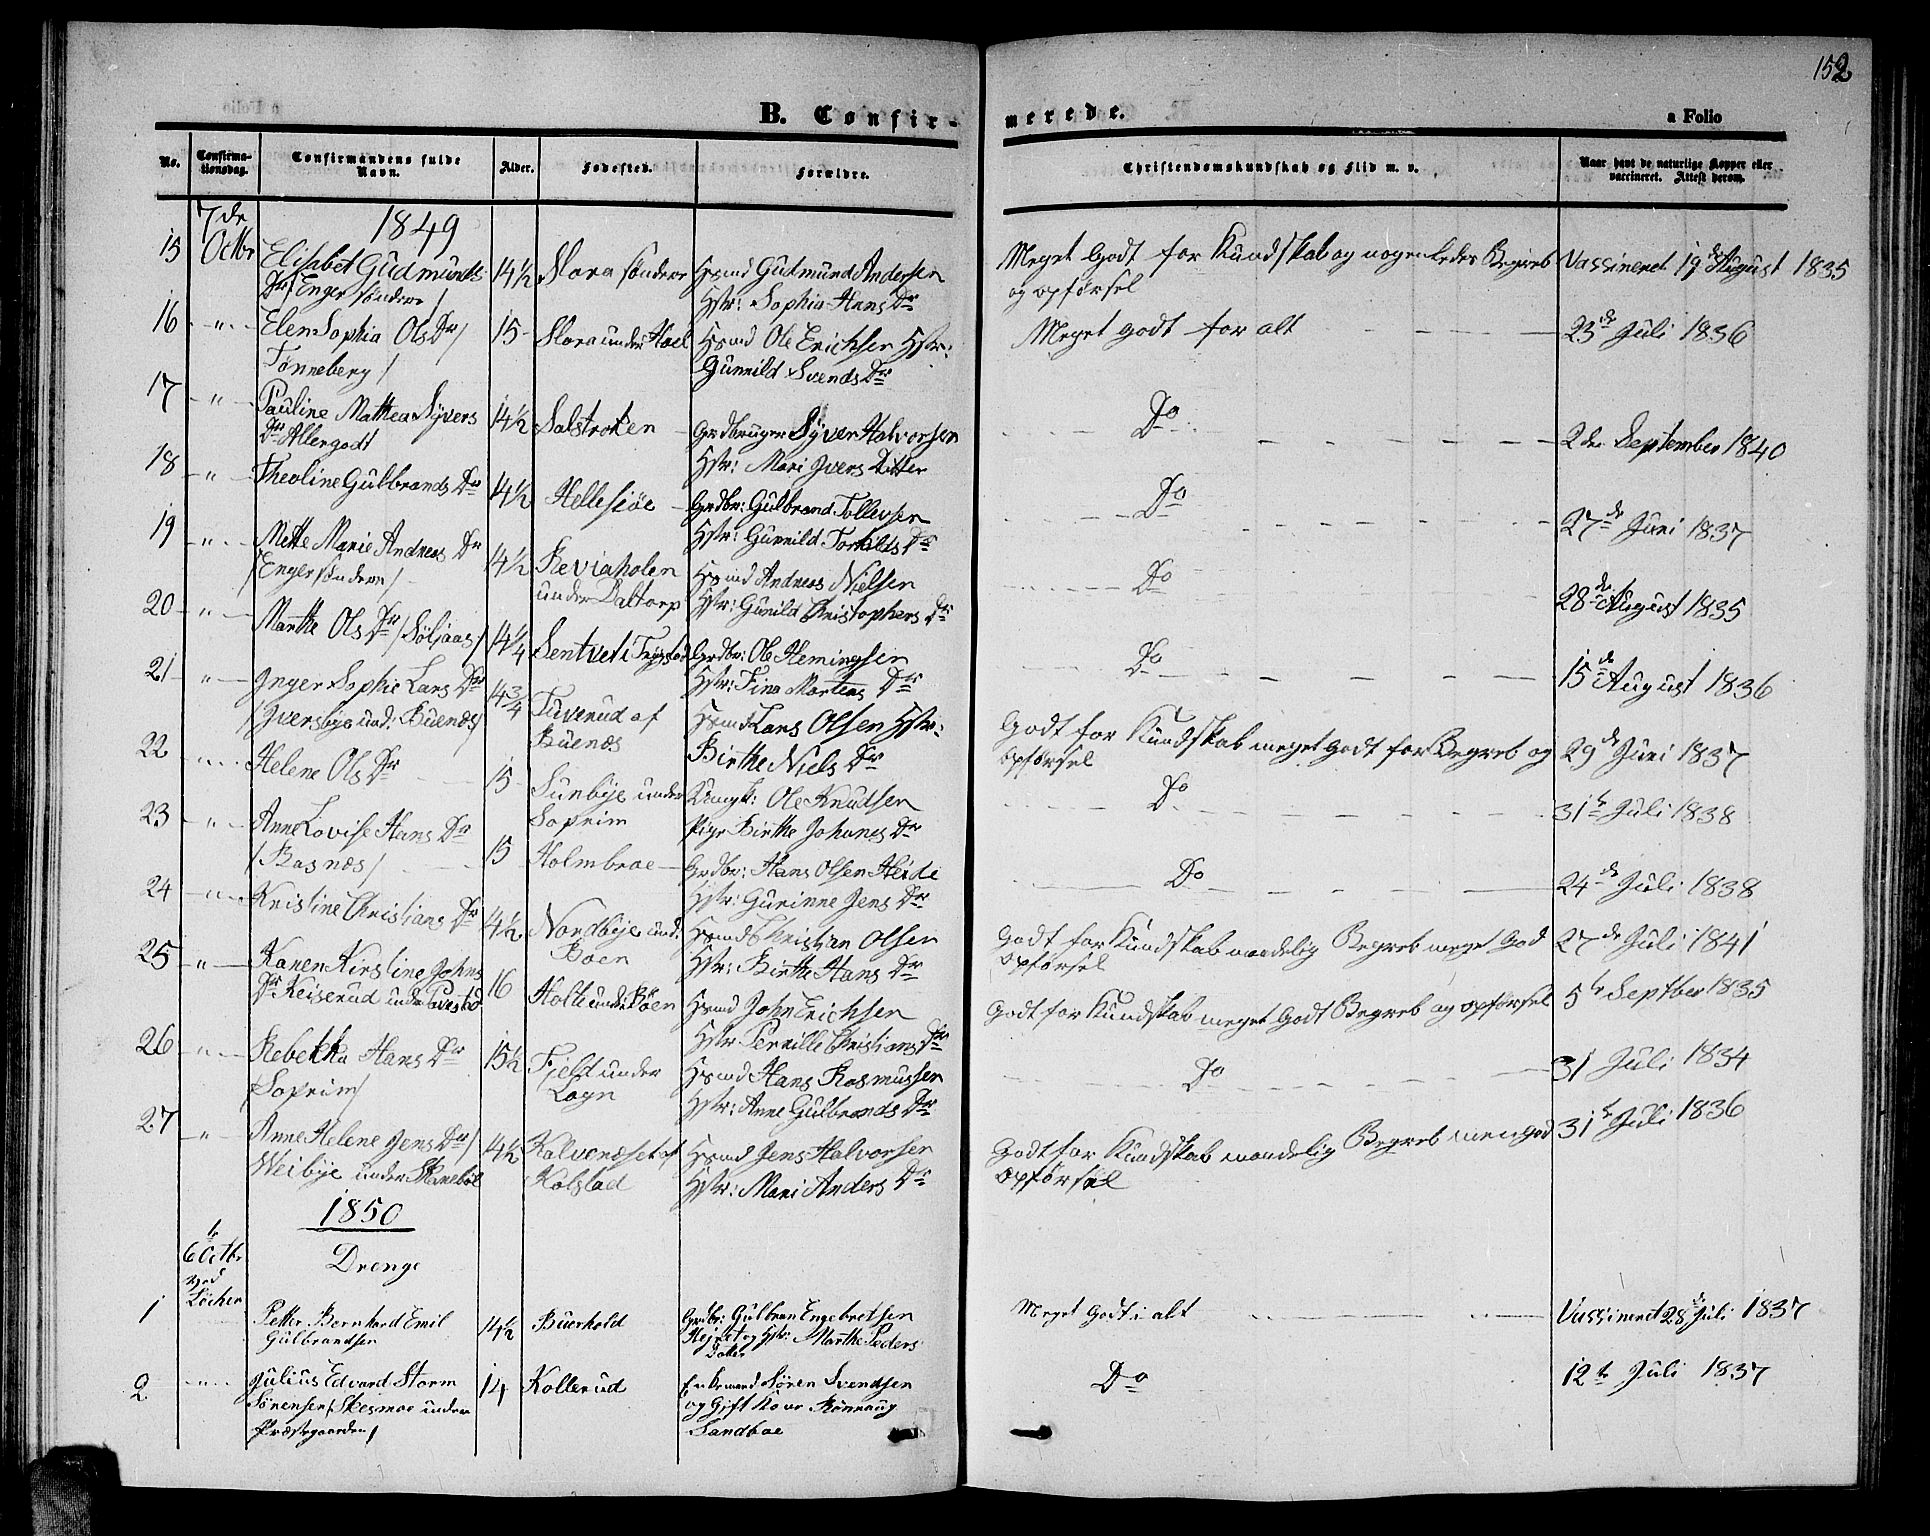 152
B. Confirmerede. a Folio
No. Confirmationsdag. Confirmandens fulde Navn. Alder. Fødested. Forældre. Christendomskundskab og Flid m. v. Naar havt de naturlige Kopper eller vaccineret. Attest derom.
7de Octbr 1849
15 Elisabet Gudmunds 14½ Slora søndere Hsmd Gudmund Andersen Meget Godt for Kundskab og nogenledes Begreb Vassineret 19de August 1835
Dr / Enger søndere / Hstr: Sophia Hans Dr og opførsel
16 " Elen Sophia Ols Dr / 15 Slora under Hoel Hsmd Ole Erichsen Hstr: Meget godt for alt 23de Juli 1836
Tønneberg / Gunnild Svends Dr
17 " Pauline Mathea Syvers 14½ Solstroken Grdbruger Syver Halvorsen Do 2den September 1840
Dr Allergodt Hstr: Mari Ivers Datter
18 " Theoline Gulbrands Dr 14½ Hellesiøe Grdbr: Gulbrand Tollevsen Do 27de Juni 1837
Hstr: Gunnild Torkilds Dr
19 " Mette Marie Andreas Dr 14½ Reviaholen Hsmd Andreas Nielsen Do 28de August 1835
/ Enger søndere / under Daltorp Hstr: Gunild Christophers Dr
20 " Marthe Ols Dr / Søljaas / 14¼ Sentvet i Trygstad Grdbr: Ole Hemingsen Do 15de August 1836
Hstr: Fina Martens Dr
21 " Inger Sophie Lars Dr 14¾ Tuverud af Hsmd Lars Olsen Hstr: Godt for Kundskab meget godt for Begreb og 29de Juni 1837
/ Iversbye und: Buenæs / Buenæs Birthe Niels Dr opførsel
22 " Helene Ols Dr 15 Sunbye under Ungk: Ole Knudsen Do 31te Juli 1838
Soprim Pige Birthe Johanes Dr
23 " Anne Lovise Hans Dr 15 Holmbroe Grdbr: Hans Olsen Heide Do 24de Juli 1838
/ Rasnæs / Hstr: Gurinne Jens Dr
24 " Kristine Christians Dr 14½ Nordbye und: Hsmd Christian Olsen Godt for Kundskab maadelig Begreb meget God 27de Juli 1841
Boen Hstr: Birthe Hans Dr opførsel
25 " Karen Kirstine Johns 16 Holte under Böen Hsmd John Erichsen Godt for Kundskab meget Godt Begreb og opførsel 5te Septber 1835
Dr Keiserud under Hstr Pernille Christians Dr
26 " Rebekka Hans Dr 15½ Fjeld under Hsmd Hans Rasmussen Do 31 Juli 1834
/ Soprim / Løgn Hstr: Anne Gulbrands Dr
27 " Anne Helene Jens Dr / 14½ Kalvenæset af Hsmd Jens Halvorsen Godt for Kundskab maadelig Begreb men god 31te Juli 1836
Weibye under Skanebøl Kolstad Hstr: Mari Anders Dr opførsel
1850
6te Octbr ved Löcken
Drenge
1 Petter Bernhard Emil 14½ Buerhold Grdbr: Gulbran Engebretsen Meget godt i alt Vassineret 28de Juli 1837
Gulbrandsen og Hstr: Marthe Peders
Datter
2 " Julius Edvard Storm 14 Kollerud Enkemand Sören Svendsen Do 12te Juli 1837
Sörensen / Skesmoe under og Gift Kone Rönnaug
Præstegaarden / Sandboe